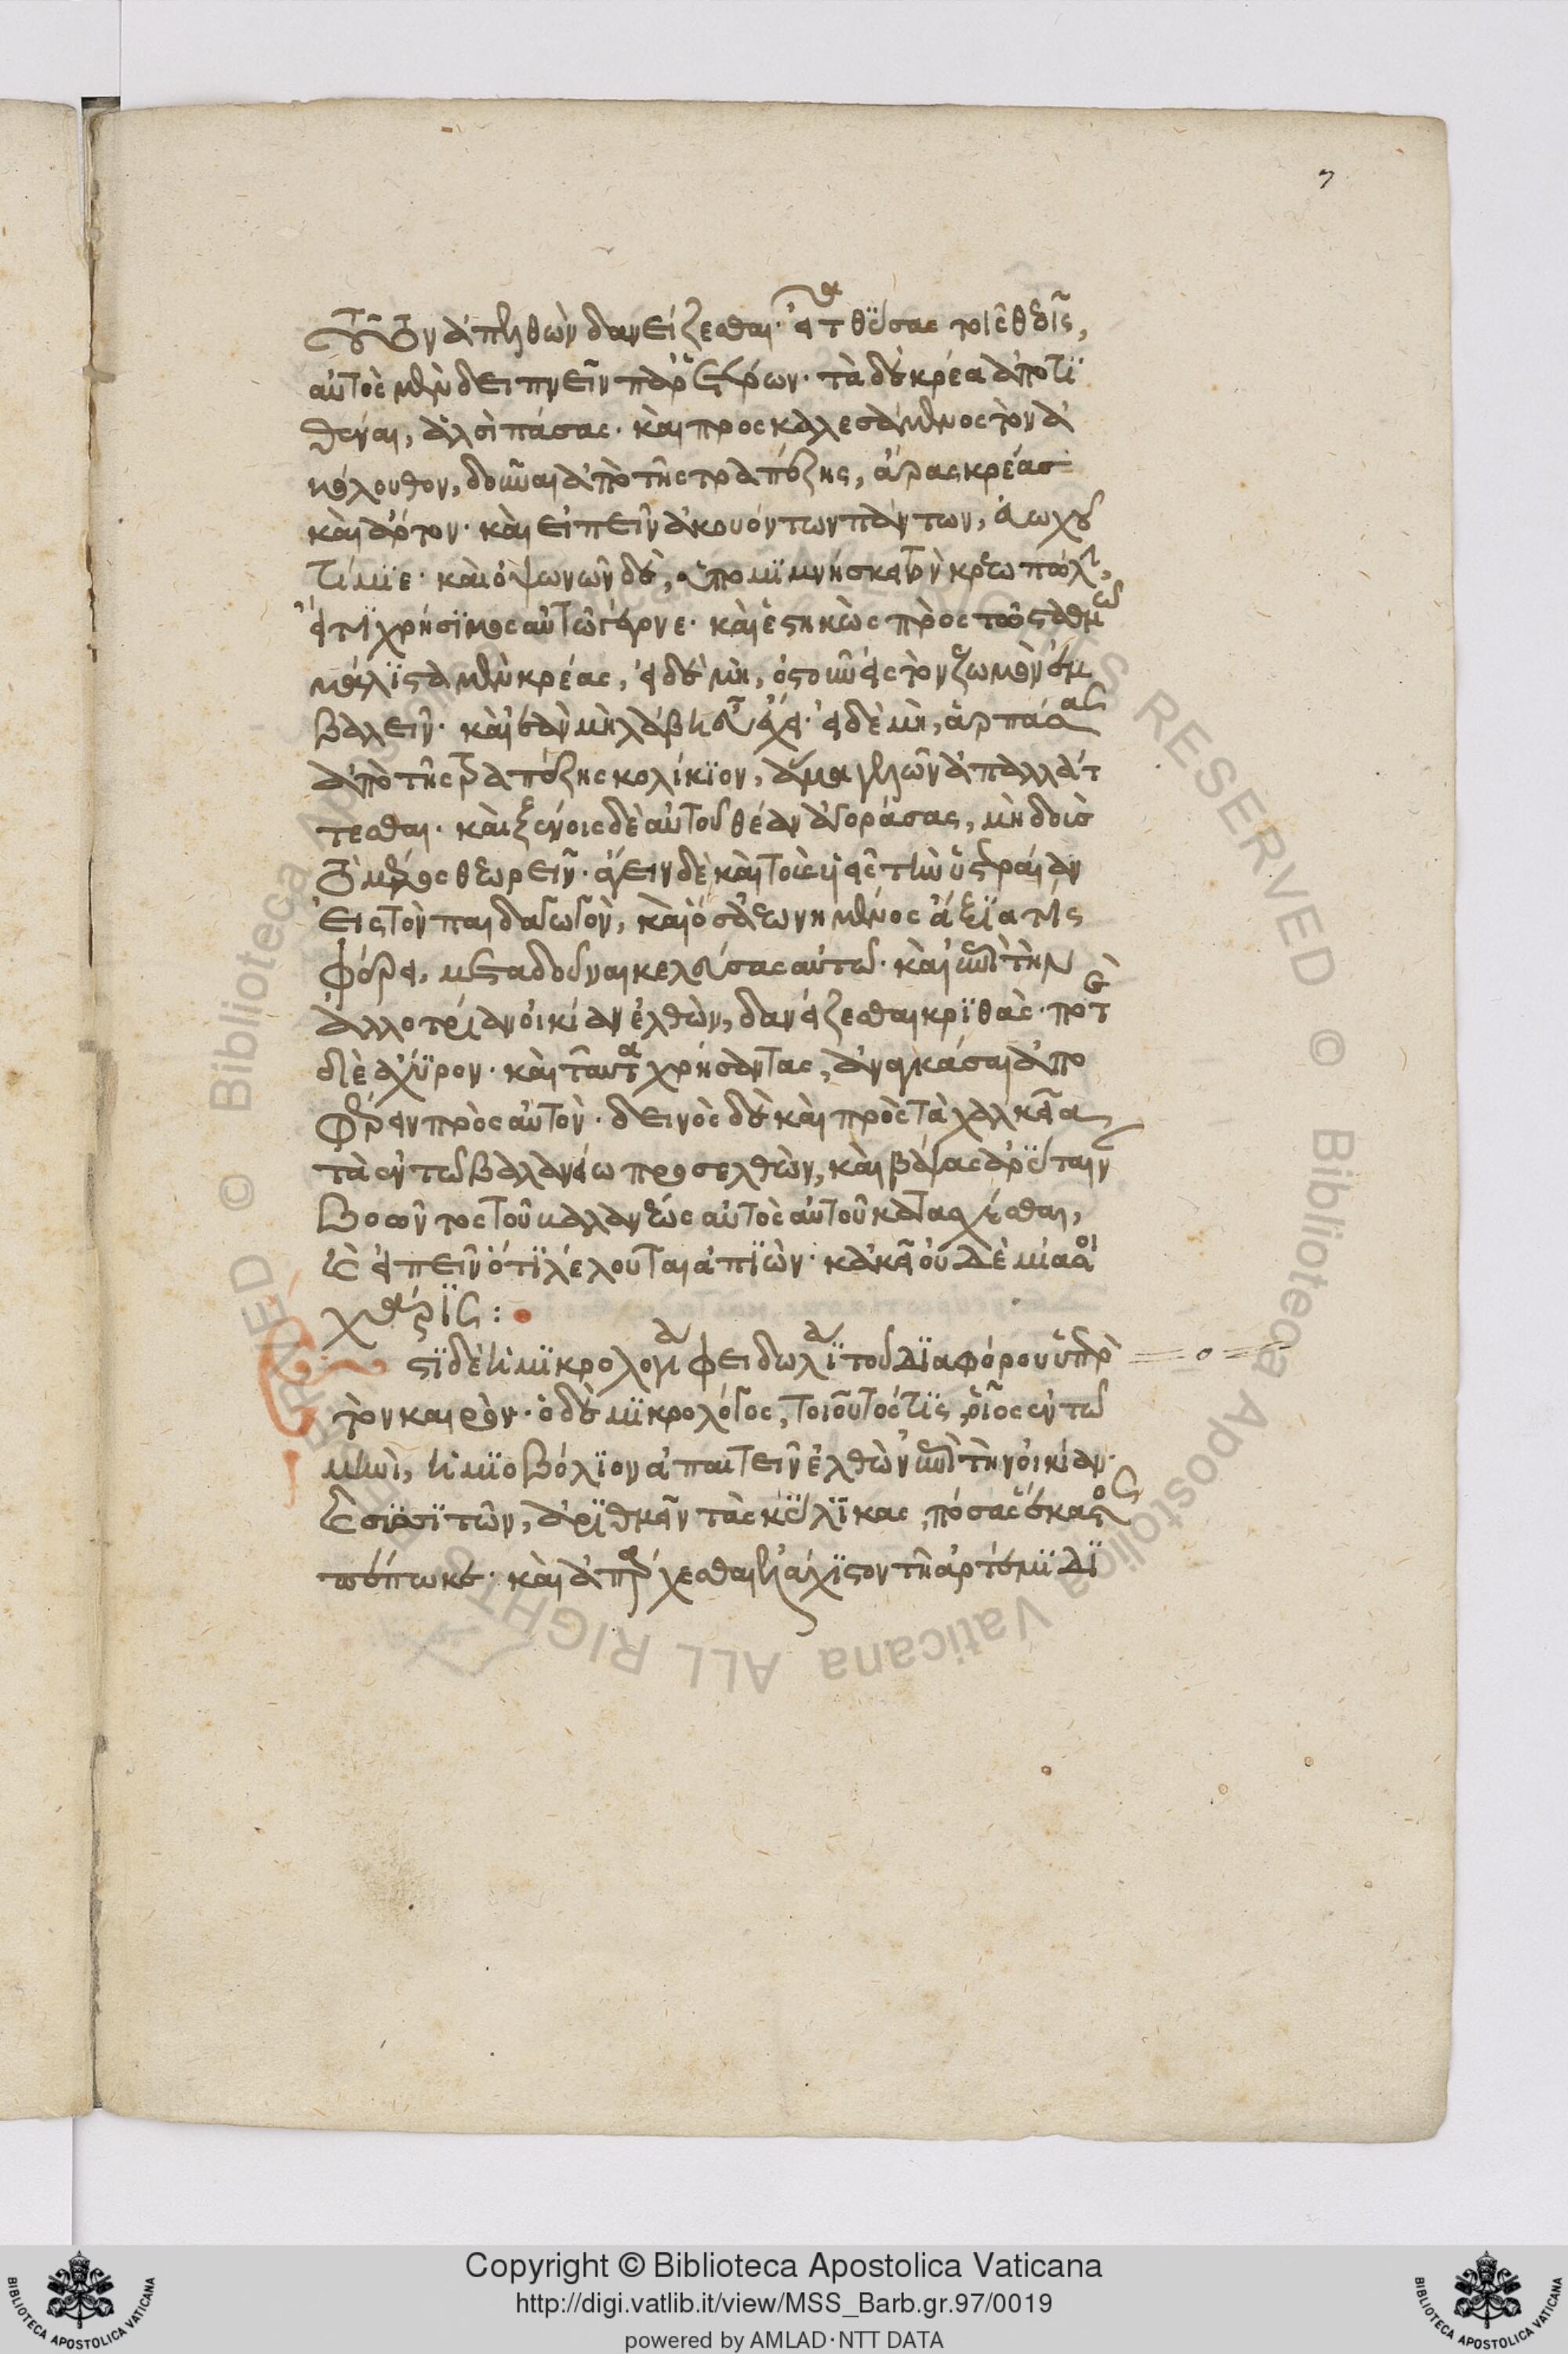 7
τοῦτον ἀπελθὼν δανείζεσθαι· εἶτα θύσας τοῖς θεοῖς,
αὐτὸς μὲν δειπνεῖν παρ' ἑτέρων· τὰ δὲ κρέα ἀποτι
θέναι, ἁλσὶ πάσας· καὶ προσκαλεσάμενος τὸν ἀ
κόλουθον, δοῦναι ἀπὸ τῆς τραπέζης, ἄρας κρέας
καὶ ἄρτον· καὶ εἰπεῖν ἀκουόντων πάντων,
τίμιε· καὶ ὀψωνῶν δὲ, ὑπομιμνήσκει τὸν κρεωπώλην,
εἴ τι χρήσιμος αὐτῷ γέγονε· καὶ ἑστηκὼς πρὸς τῷ σταθμῷ
μάλιστα μὲν κρέας, εἰ δὲ μὴ, ὀστοῦν εἰς τὸν ζωμὸν ἐμ
βαλεῖν· καὶ ἐὰν μὲν λάβῃ εὖ ἔχει· εἰ δὲ μὴ, ἁρπάσας
ἀπὸ τῆς τραπέζης κολίκιον, ἅμα γελῶν ἀπαλλάτ
τεσθαι· καὶ ξένοις δὲ αὐτοῦ θέαν ἀγοράσας, μὴ δοὺς
τὸ μέρος θεωρεῖν· ἄγειν δὲ καὶ τοὺς υἱεῖς τὴν ὑστεραίαν
εἰς τὸν παιδαγωγὸν, καὶ ὅσα ἐωνημένος ἄξιά τις
φέρει, μεταδοῦναι κελεῦσαι αὐτῷ· καὶ ἐπὶ τὴν
ἀλλοτρίαν οἰκίαν ἐλθὼν, δανείζεσθαι κριθάς· ποτὲ
δὲ ἄχυρον· καὶ ταῦτα χρήσαντας, ἀναγκάσαι ἀπο
φέρειν πρὸς αὐτόν· δεινὸς δὲ καὶ πρὸς τὰ χαλκεῖα
τὰ ἐν τῷ βαλανείῳ προσελθὼν, καὶ βάψας ἀρύταιναν
βοῶντος τοῦ βαλανέως αὐτὸς αὑτοῦ καταχέασθαι,
καὶ εἰπεῖν ὅτι λέλουται ἀπιών· κἀκεῖ οὐδεμία σοι
χάρις:
ἔστι δὲ ἡ μικρολογία φειδωλία τοῦ διαφόρου ὑπὲρ
τὸν καιρόν· ὁ δὲ μικρολόγος, τοιοῦτός τις, οἷος ἐν τῷ
μηνὶ, ἡμιοβόλιον ἀπαιτεῖν ἐλθὼν ἐπὶ τὴν οἰκίαν·
καὶ συσσιτῶν, ἀριθμεῖν τὰς κύλικας, πόσας ἕκαστος
πέπωκε· καὶ ἀπάρχεσθαι ἐλάχιστον τῇ ἀρτέμιδι
Copyright © Biblioteca Apostolica Vaticana
http://digi.vatlib.it/view/MSS_Barb.gr.97/0019
powered by AMLAD·NTT DATA
BIBLIOTECA APOSTOLICA VATICANA
BIBLIOTECA APOSTOLICA VATICANA
© Biblioteca Apostolica Vaticana ALL RIGHTS RESERVED